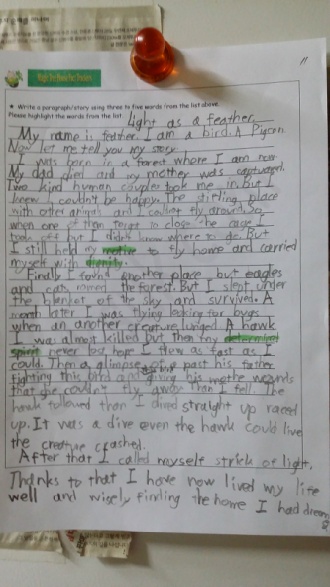 11
★ Write a paragraph/story using three to five words from the list above.
Please highlight the words from the list.
Light as a feather.
My name is feather. I am a bird. A Pigeon
Now let me tell you my story
I was born in a forest where I am now
My dad died and my mother was captured.
Two kind human couples took me in, but I
knew I couldn't be happy. The place
with other animals and I couldn't fly around. So
when one of them to close the cage I
took off but I didn't know where to go. But
I still held my motive to fly home and carried
myself with dignity.
Finally I found another place but eagles
and cats roamed the forest. But I slept under
the blanket of the sky and survived. A
month later I was flying looking for bugs
when an another creature lunged. A hawk
I was almost killed but then my determined
spirit never lost hope I flew as fast as I
could. Then a glimpse of a past his father
fighting this bird and giving his mother wounds
that she couldn't fly away than I fell. The
hawk followed than I dived straight up raced
up. It was a dive even the hawk could live
the creature crashed.
After that I called myself strick of light.
Thanks to that I have now lived my life
well and wisely finding the home I had dream